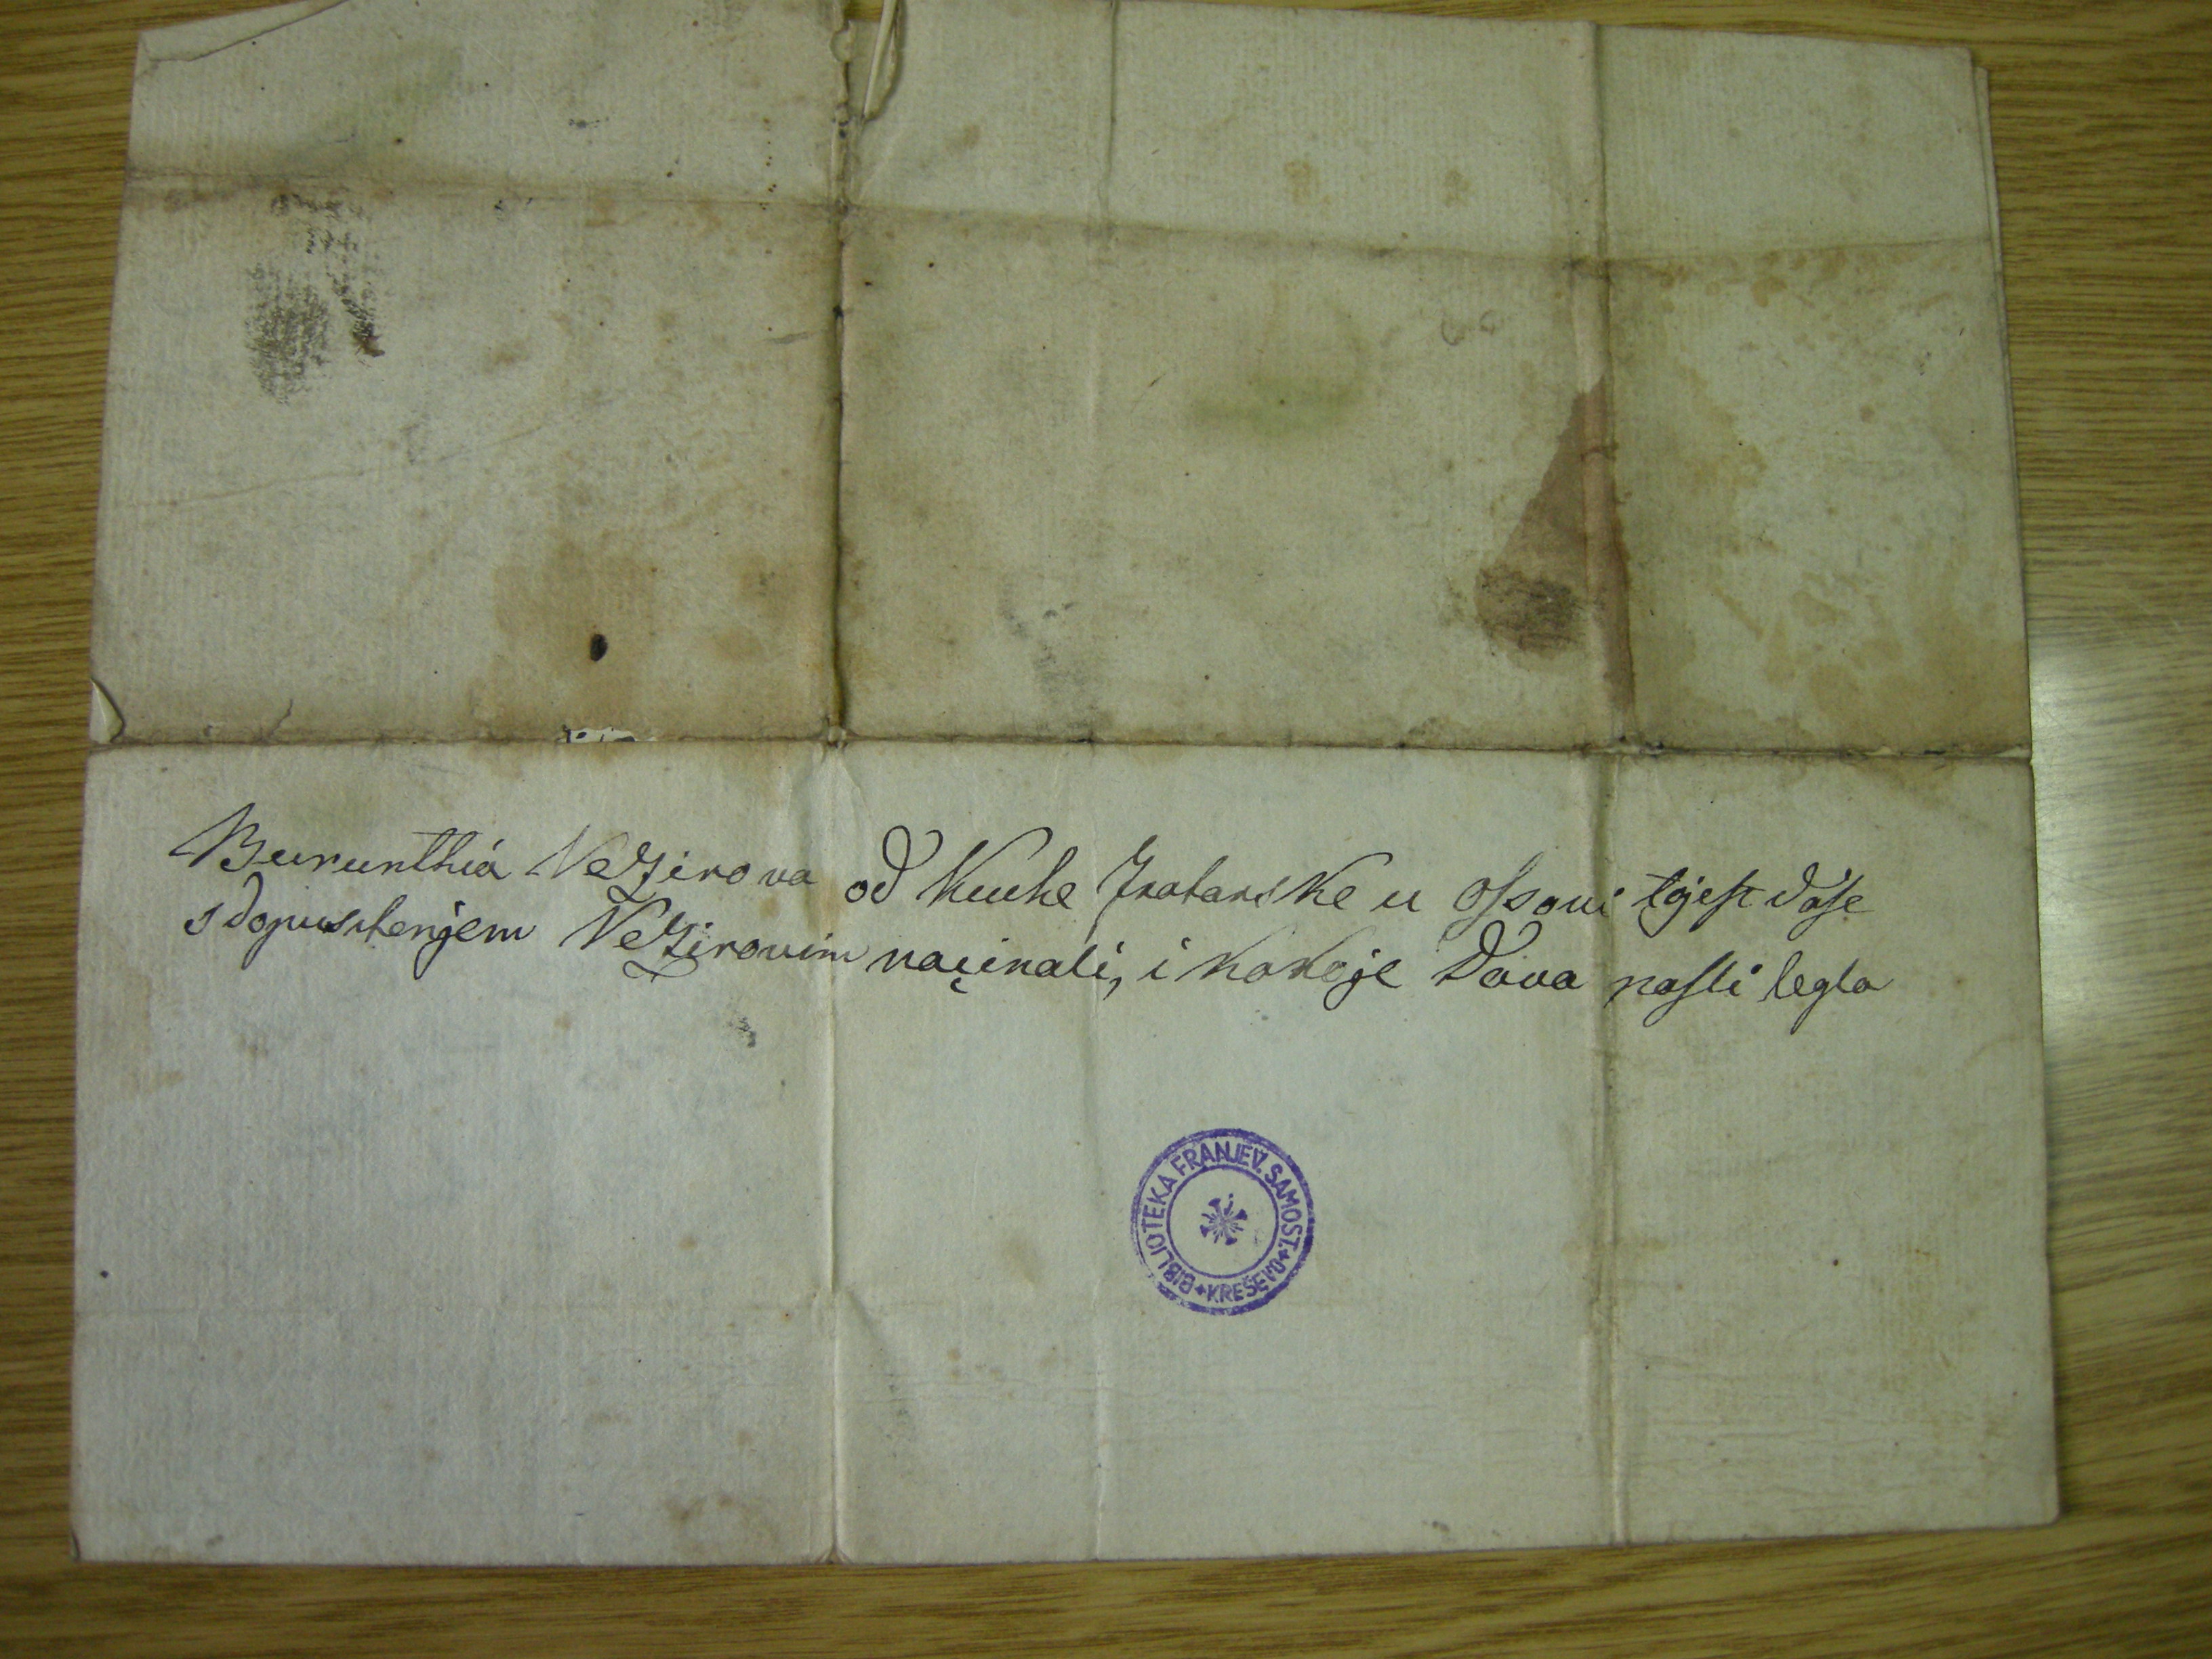 Burunthia Vezirova od Kuche Fratarske u Ossovi tojest dase
s dopusctenjem Vezirovim načinali, i kakoje Dava posli legla
BIBLIOTEKA FRANJEV. SAMOST. KREŠEVO